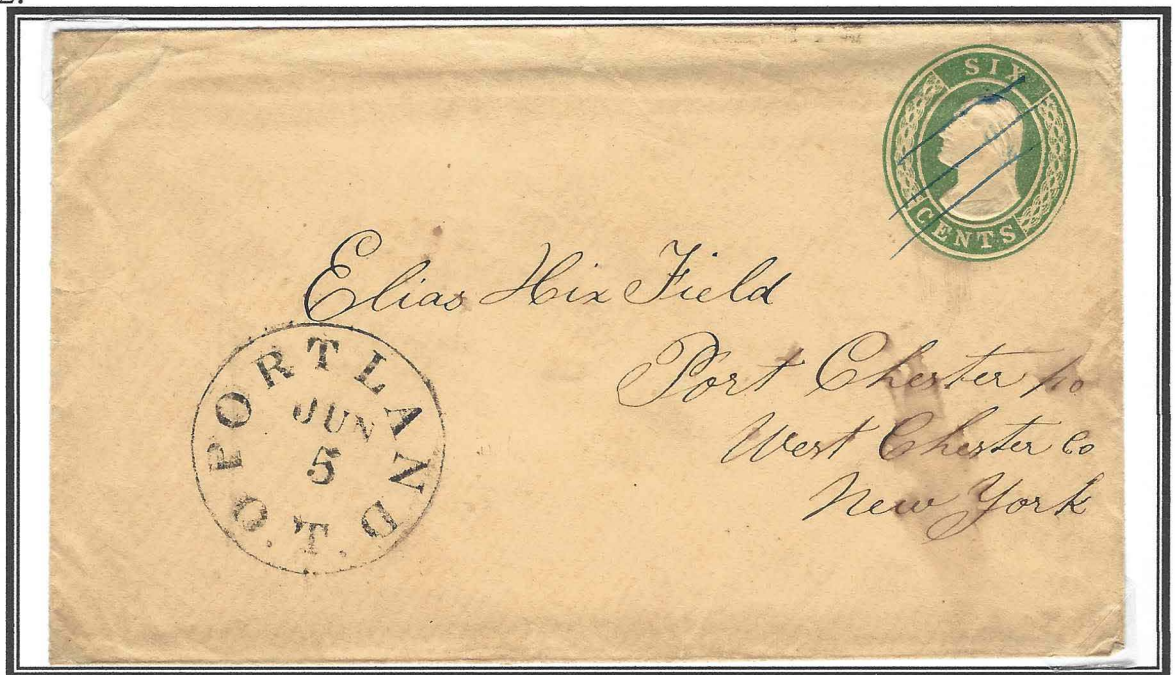 SIX
CENTS
Elias Hix Field
Port Chester po
West Chester Co
New York
PORTLAND
JUN
5
O.T.